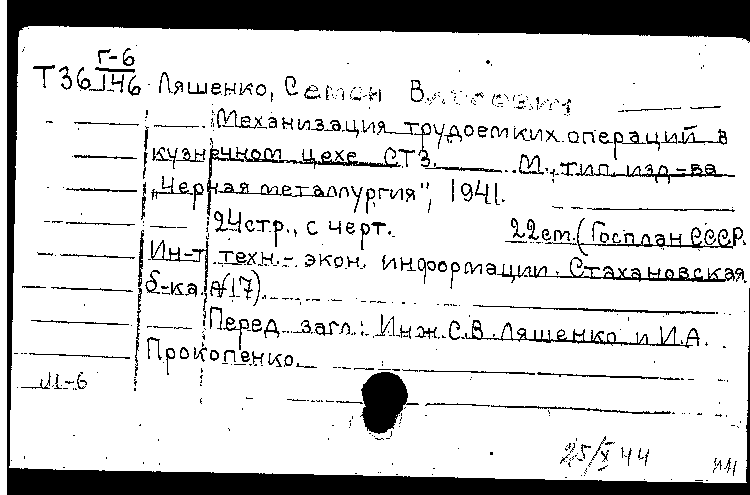 Г-6
Т36 146 Ляшенко, Семен Власович
Механизация трудоемких операций в
кузнечном цехе СТЗ. М., тип. изд-ва
„Черная металлургия", 1941.
24стр., с черт. 22см. (Госплан СССР.
Ин-т техн.-экон. информации. Стахановская
б-ка (17).
Перед загл.: Инж. С.В. Ляшенко и И.А.
Прокопенко.
М-6
25/X 44